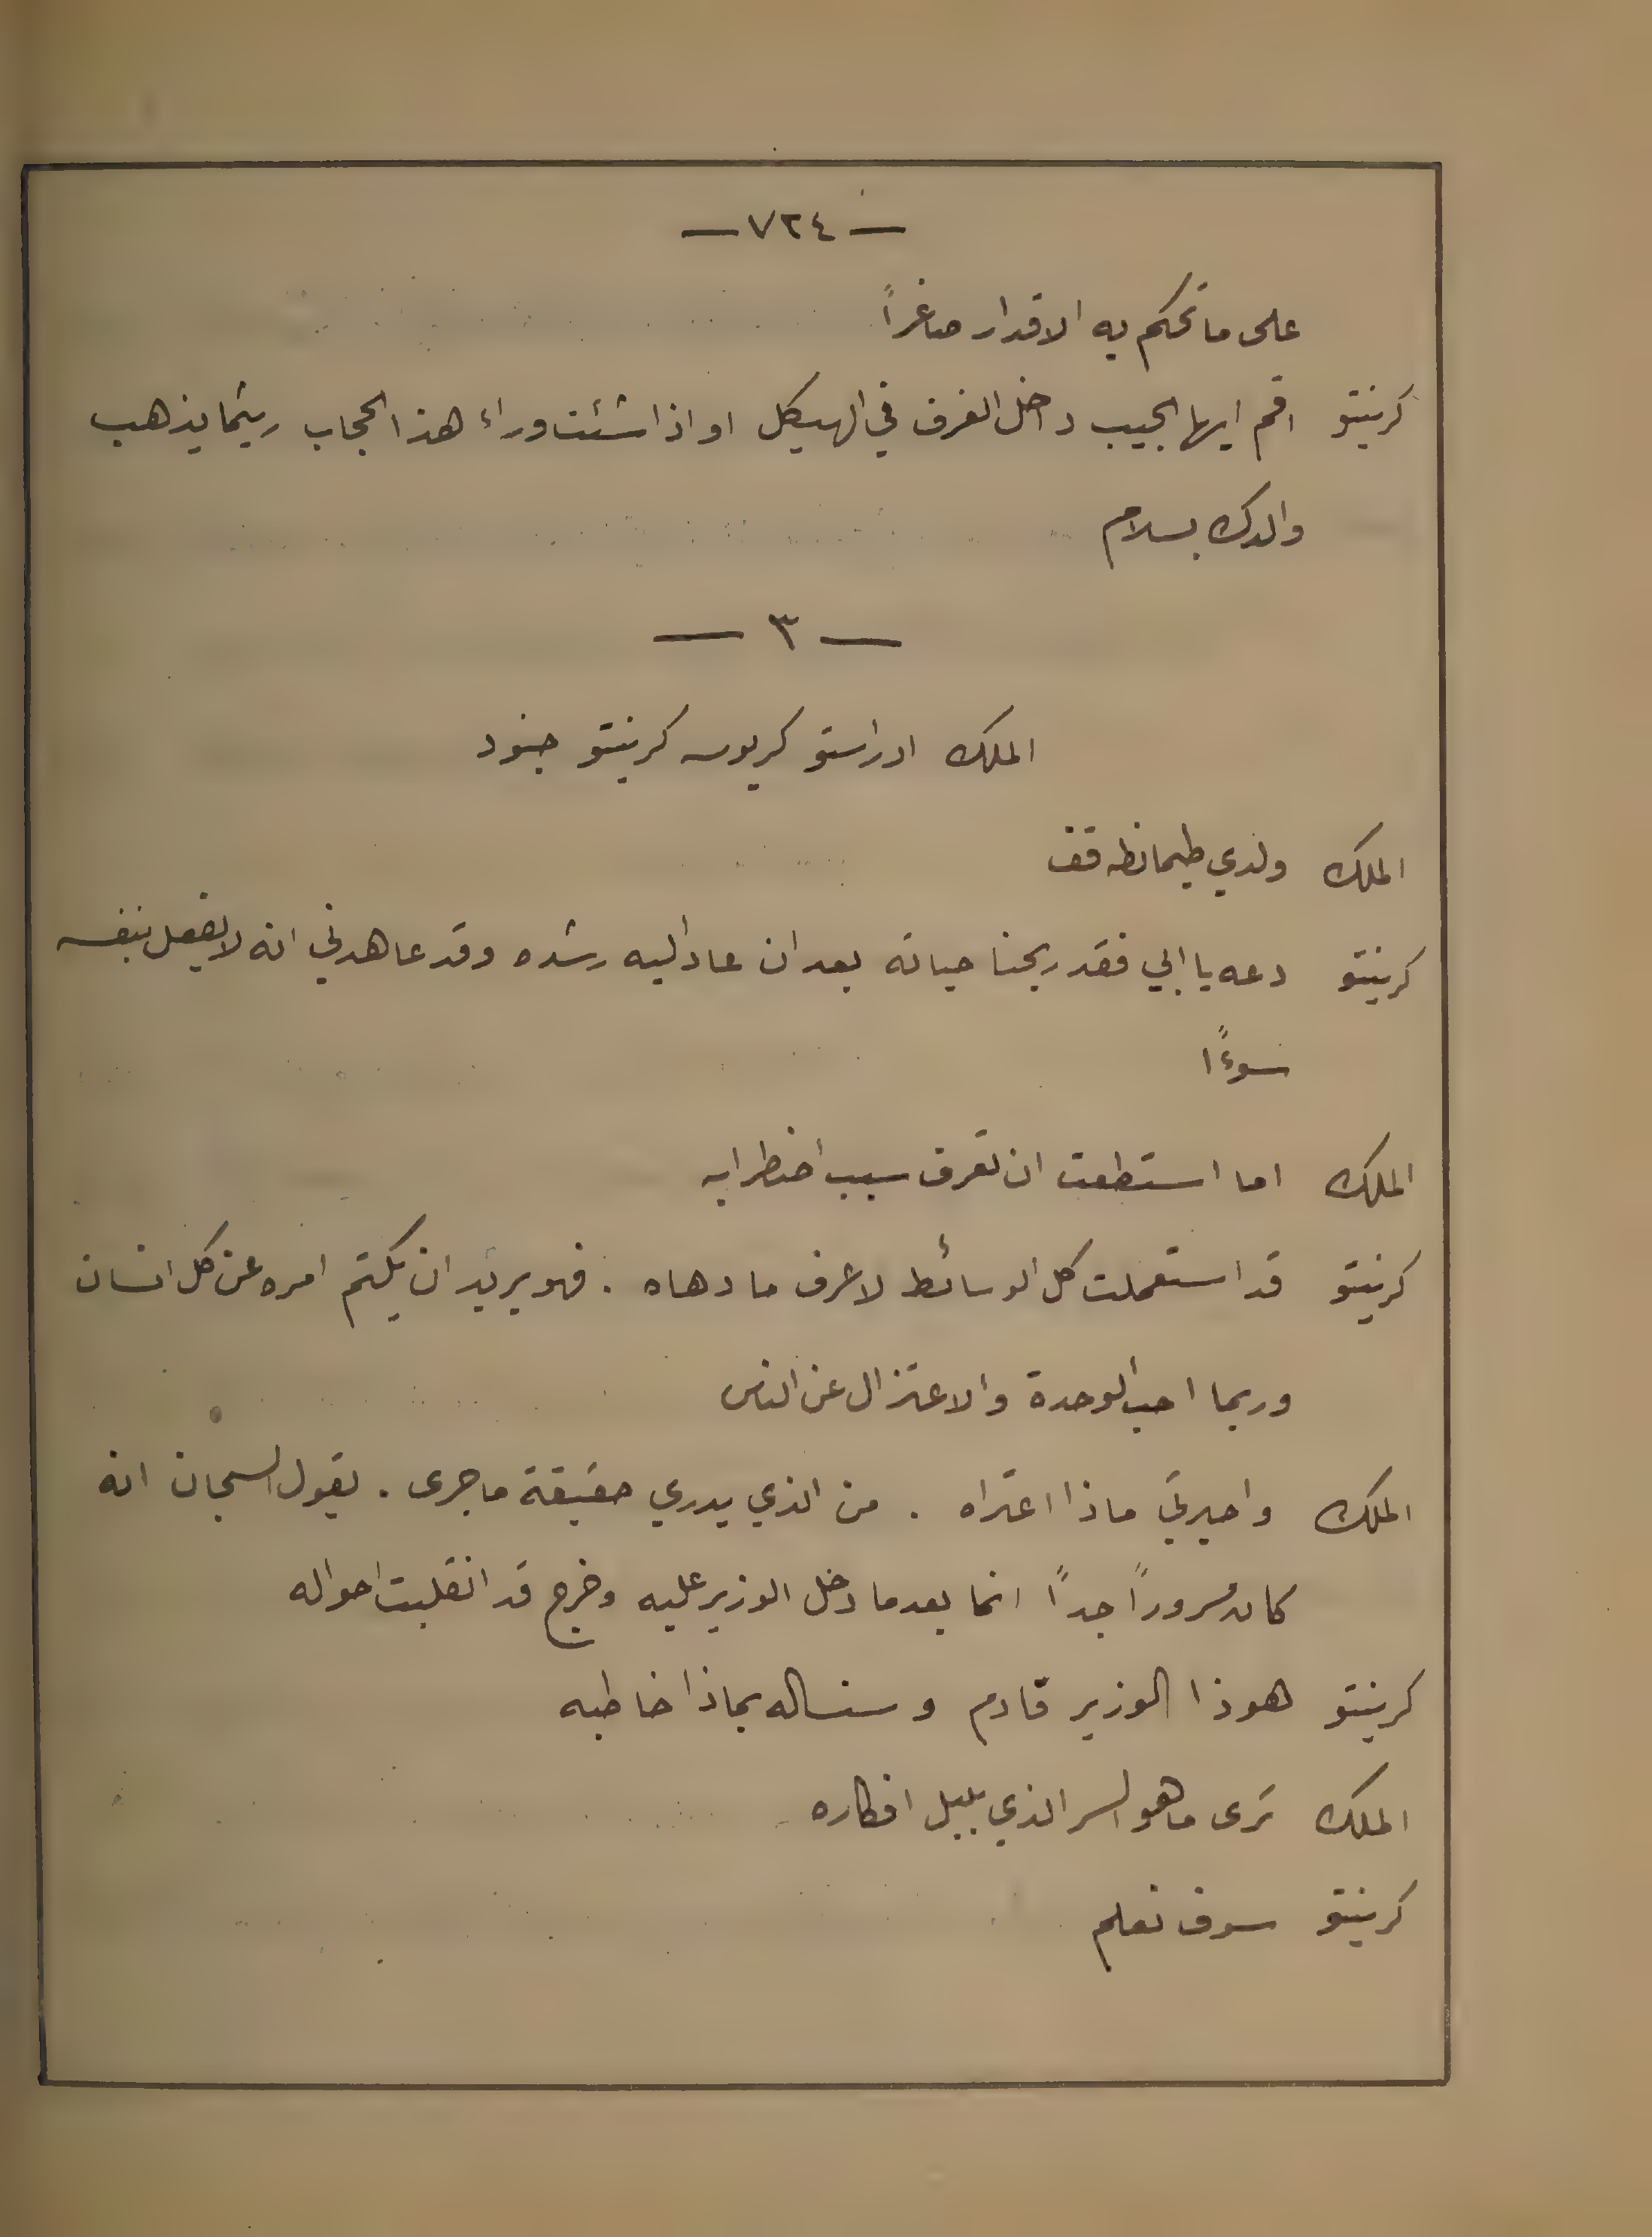 — ٧٢٤ —
على ما تحكم به الاقدار صاغراً
كرينتو اقم ايها الحبيب داخل الغرف في الهيكل او اذا شئت وراء هذا الحجاب ريثما يذهب
والدك بسلام
— ٣ —
الملك ادراستو كريوس كرينتو جنود
الملك ولدي طيمانطه قف
كرينتو دعه يا ابي فقد ربحنا حياته بعد ان عاد اليه رشده وقد عاهدني انه لا يفعل بنفسه
سوءًا
الملك اما استطعت ان تعرف سبب اضطرابه
كرينتو قد استعملت كل الوسائط لاعرف ما دهاه . فهو يريد ان يكتم امره عن كل انسان
وربما احب الوحدة والاعتزال عن الناس
الملك واحيرتي ماذا اعتراه . من الذي يدري حقيقة ما جرى . يقول السجان انه
كان مسروراً جداً انما بعد ما دخل الوزير عليه وخرج قد انقلبت احواله
كرينتو هوذا الوزير قادم وسنساله بماذا خاطبه
الملك ترى ما هو السر الذي بلبل افكاره
كرينتو سوف نعلم